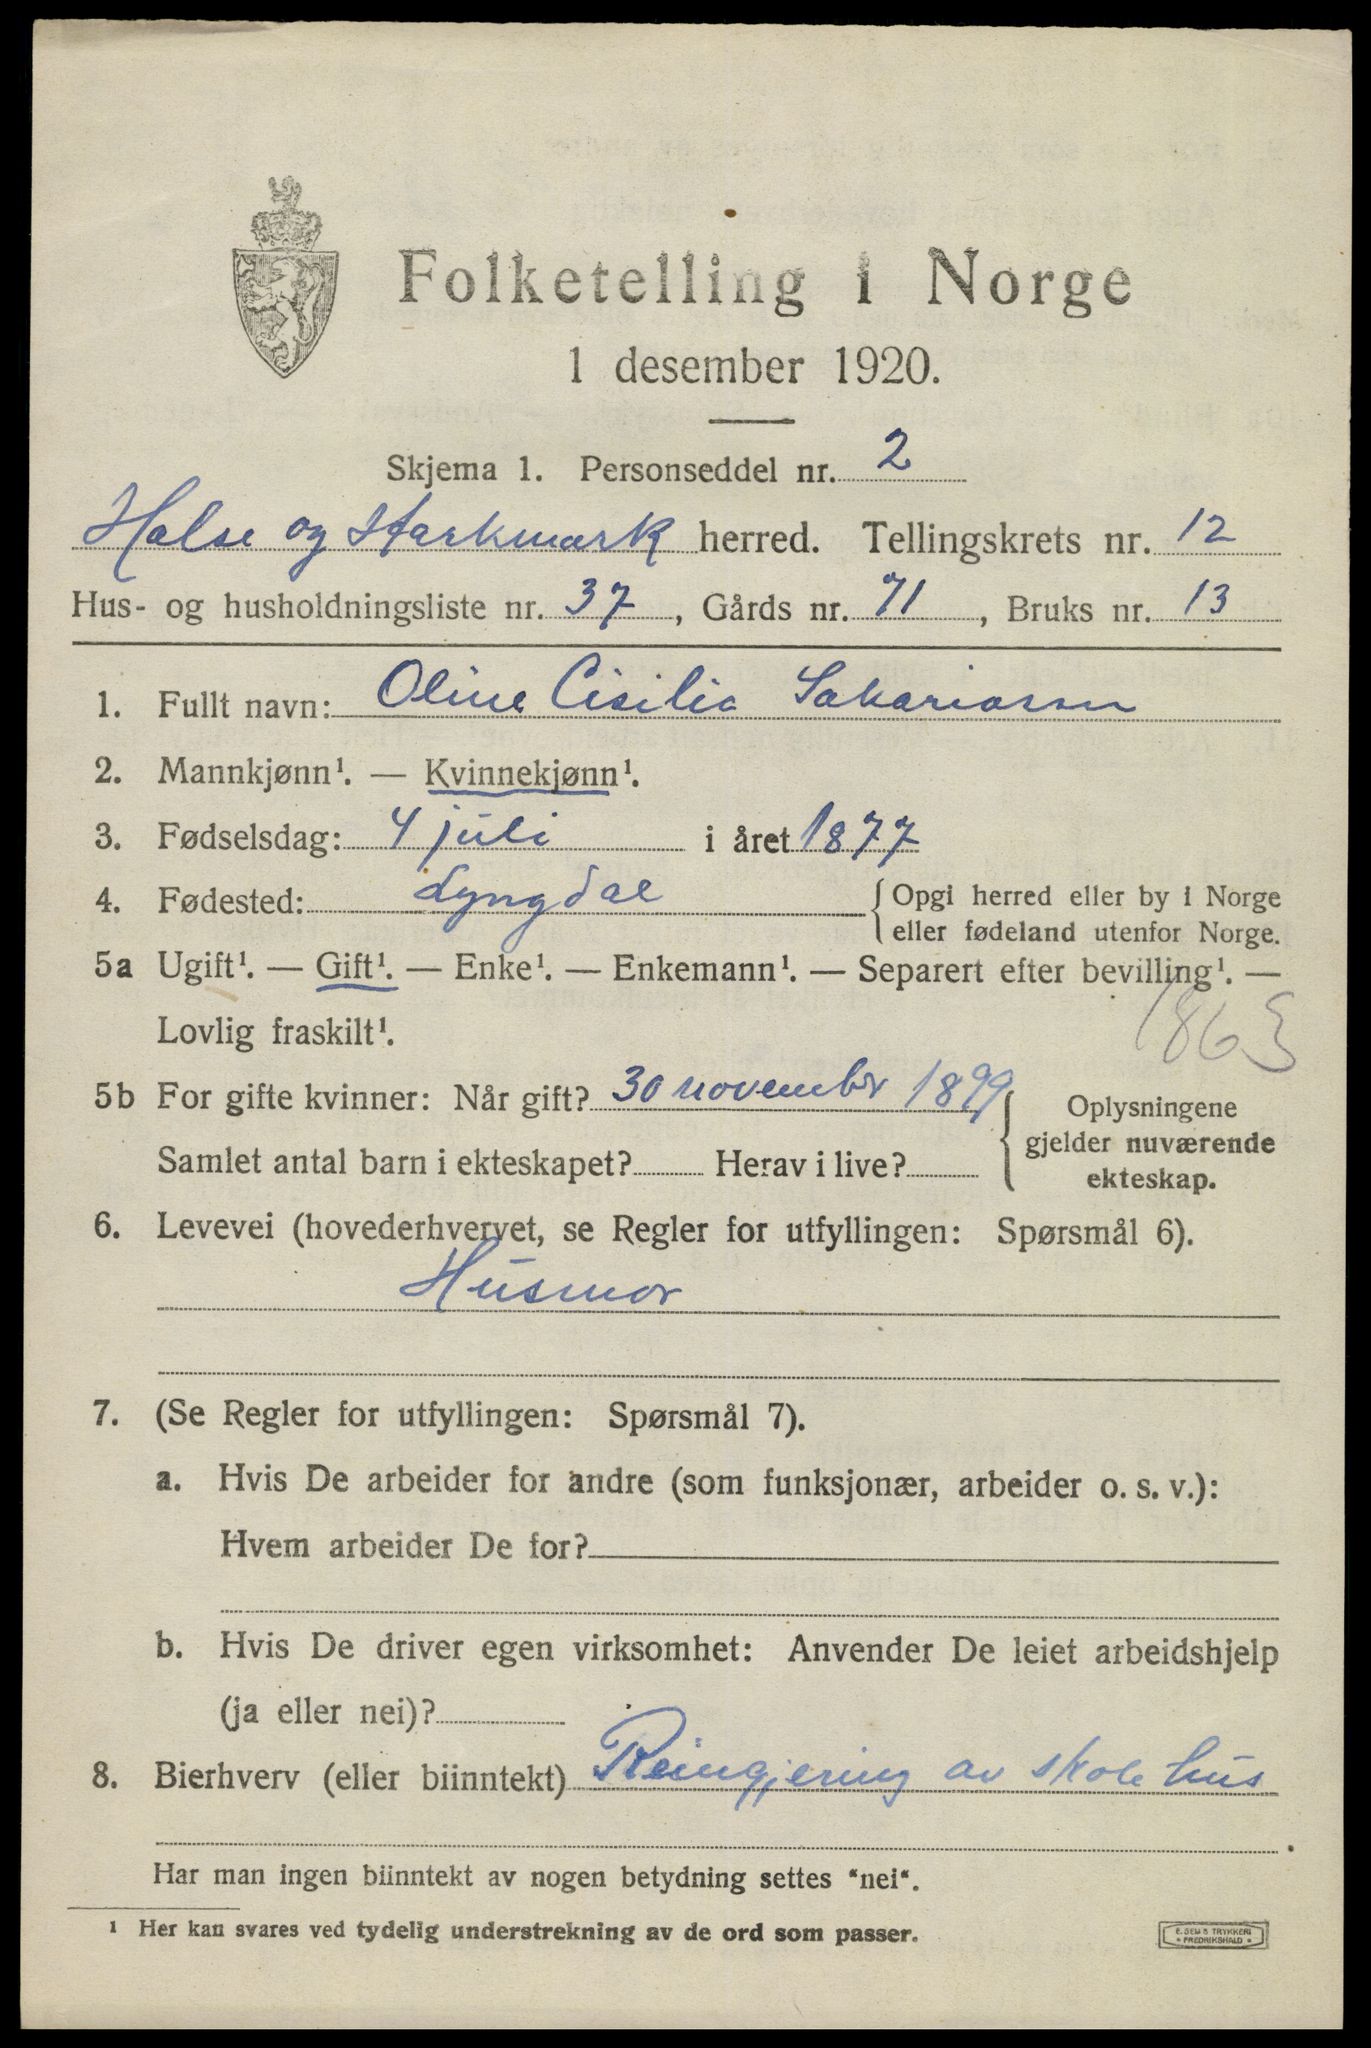 Folketelling i Norge
1 desember 1920.
Skjema 1. Personseddel nr. 2
Halse og Harkmark herred. Tellingskrets nr. 12
Hus- og husholdningsliste nr. 37, Gårds nr. 71, Bruks nr. 13
1. Fullt navn: Oline Cisilia Sakariasen
2. Mannkjønn¹. — Kvinnekjønn¹.
3. Fødselsdag: 4 juli i året 1877
4. Fødested: Lyngdal { Opgi herred eller by i Norge
eller fødeland utenfor Norge.
5a Ugift¹. — Gift¹. — Enke¹. — Enkemann¹. — Separert efter bevilling¹. —
Lovlig fraskilt¹.
1863
5b For gifte kvinner: Når gift? 30 november 1899
Samlet antal barn i ekteskapet? Herav i live?
{ Oplysningene
gjelder nuværende
ekteskap.
6. Levevei (hovederhvervet, se Regler for utfyllingen: Spørsmål 6).
Husmor
7. (Se Regler for utfyllingen: Spørsmål 7).
a. Hvis De arbeider for andre (som funksjonær, arbeider o. s. v.):
Hvem arbeider De for?
b. Hvis De driver egen virksomhet: Anvender De leiet arbeidshjelp
(ja eller nei)?
8. Bierhverv (eller biinntekt) Reingjering av skole hus
Har man ingen biinntekt av nogen betydning settes "nei".
¹ Her kan svares ved tydelig understrekning av de ord som passer.
E. SEM'S TRYKKERI
FREDRIKSHALD